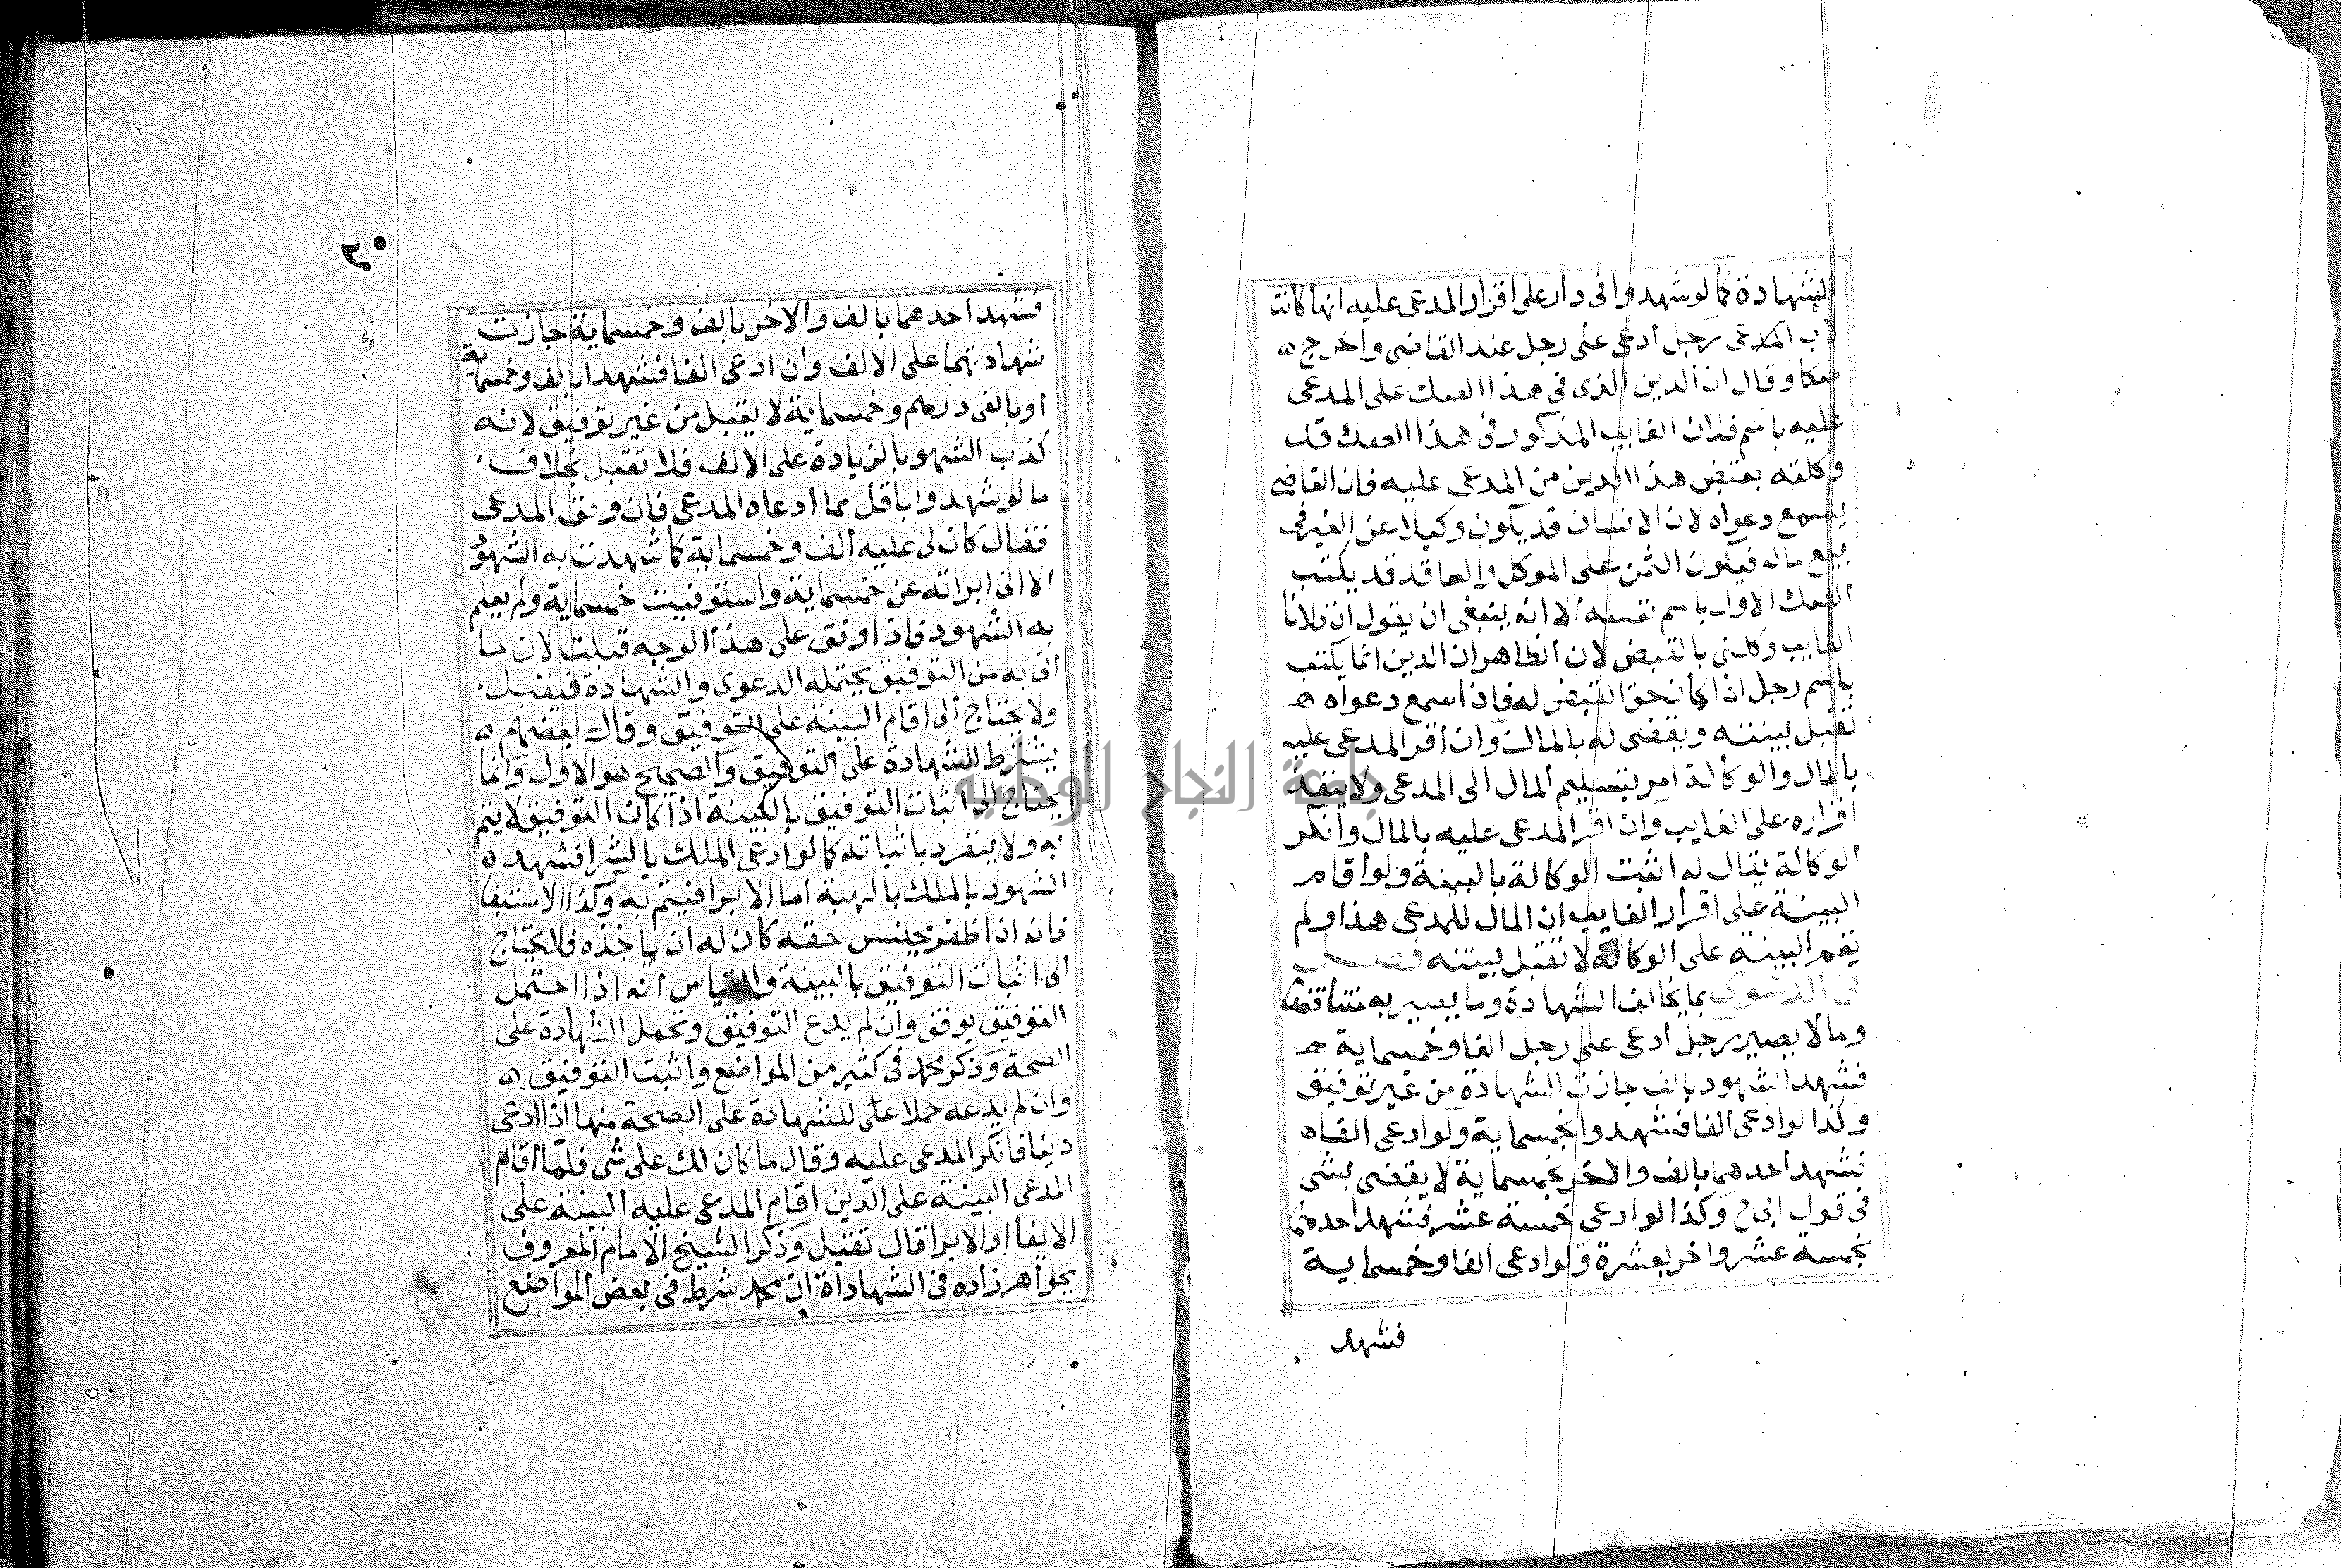 الشهادة كما لو شهدوا في دار على اقرار المدعى عليه انها كانت
لاب المدعى رجل ادعى على رجل عند القاضى واخرج
صكا وقال ان الدين الذى في هذا الصك على المدعى
عليه باسم فلان الغايب المذكور في هذا الصك قد
وكلته بقبض هذا الدين من المدعى عليه فان القاضى
يسمع دعواه لان الانسان قد يكون وكيلا عن الغير في
بيع ماله فيكون الثمن على الموكل والعاقد قد يكتب
الصك الاول باسم نفسه الا انه ينبغى ان يقول ان فلانا
الغايب وكلنى بالقبض لان الظاهر ان الدين انما يكتب
باسم رجل اذا كان حق القبض له فاذا سمع دعواه
تقبل بينته ويقضى له بالمال وان اقر المدعى عليه
بالمال والوكالة امر بتسليم المال الى المدعى ولا ينفذ
اقراره على الغايب وان اقر المدعى عليه بالمال وانكر
الوكالة يقال له اثبت الوكالة بالبينة ولو اقام
البينة على اقرار الغايب ان المال للمدعى هذا ولم
يقم البينة على الوكالة لا تقبل بينته فصل
في الدعوى بما يخالف الشهادة وما يصير به متناقضا
وما لا يصير رجل ادعى على رجل الفا وخمسماية
فشهد الشهود بالف جازت الشهادة من غير توفيق
وكذا لو ادعى الفا فشهدوا بخمسماية ولو ادعى الفا
فشهد احدهما بالف والاخر بخمسماية لا يقضى بشى
في قول ابى ح وكذا لو ادعى خمسة عشر فشهد احدهما
بخمسة عشر واخر بعشرة ولو ادعى الفا وخمسماية
فشهد
٢٠
فشهد احدهما بالف والاخر بالف وخمسماية جازت
شهادتهما على الالف وان ادعى الفا فشهدا بالف وخمسماية
او بالفى درهم وخمسماية لا يقبل من غير توفيق لانه
كذب الشهو بالزيادة على الالف فلا تقبل بخلاف
ما لو شهدوا باقل مما ادعاه المدعى فان وفق المدعى
فقال كان لى عليه الف وخمسماية كما شهدت به الشهود
الا انى ابراته عن خمسماية واستوفيت خمسماية ولم يعلم
به الشهود فاذا وفق على هذا الوجه قبلت لان ما
اتى به من التوفيق يحتمله الدعوى والشهادة فيقبل
ولا يحتاج الى اقام البينة على التوفيق وقال بعضهم
يشترط الشهادة على التوفيق والصحيح هو الاول وانما
يحتاج الى اثبات التوفيق بالبينة اذا كان التوفيق لا يتم
به ولا ينفرد باثباته كما لو ادعى الملك بالشرا فشهد
الشهود بالملك بالهبة اما الابرا فيتم به وكذا الاستيفا
فانه اذا ظفر بجنس حقه كان له ان ياخذه فلا يحتاج
الى اثبات التوفيق بالبينة والقياس انه اذا احتمل
التوفيق يوفق وان لم يدع التوفيق وتحمل الشهادة على
الصحة وذكر محمد في كثير من المواضع واثبت التوفيق
وان لم يدعه حملا على للشهادة على الصحة منها اذا ادعى
دينا فانكر المدعى عليه وقال ما كان لك على شى فلما اقام
المدعى البينة على الدين اقام المدعى عليه البينة على
الايفا او الابرا قال تقبل وذكر الشيخ الامام المعروف
بخواهر زاده في الشهاداة ان محمد شرط في بعض المواضع
جامعة النجاح الوطنية